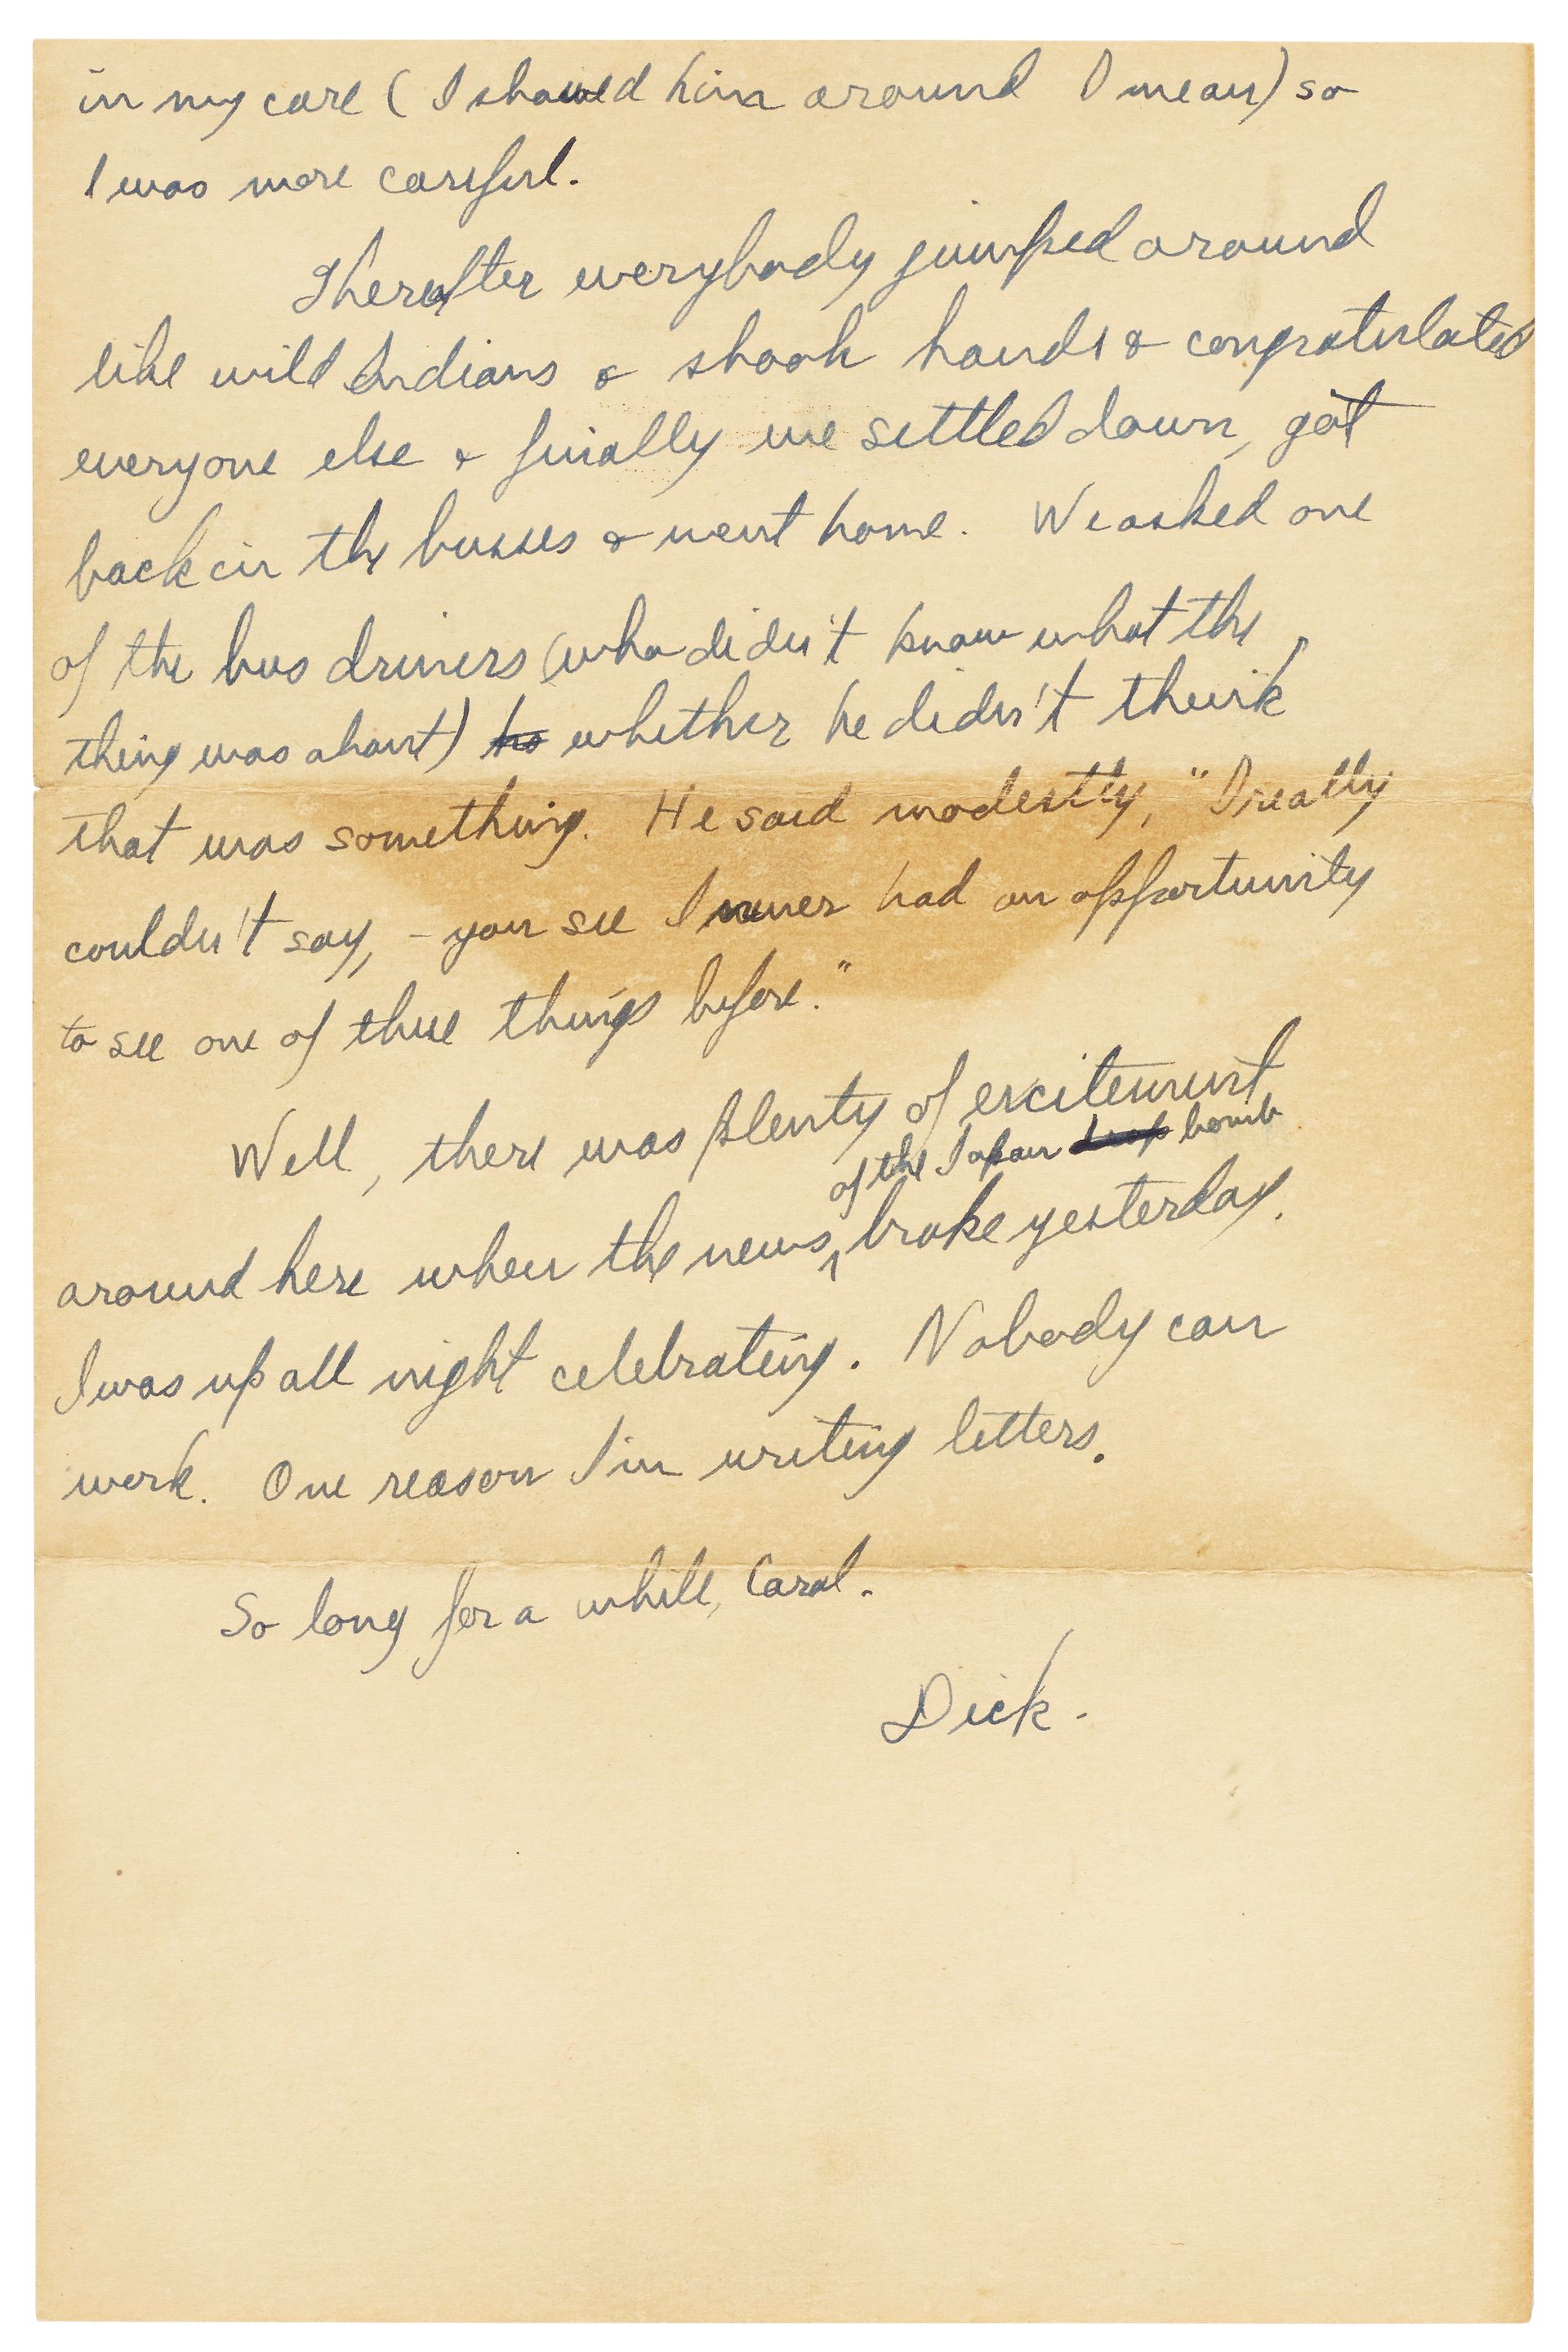 in my care (I showed him around I mean) so
I was more careful.
Thereafter everybody jumped around
like wild Indians & shook hands & congratulated
everyone else & finally we settled down, got
back in the busses & went home. We asked one
of the bus drivers (who didn't know what the
thing was about) whether he didn't think
that was something. He said modestly, "I really
couldn't say, - you see I never had an opportunity
to see one of these things before."
Well, there was plenty of excitement
of the Japan bomb
around here when the news ^ broke yesterday.
I was up all night celebrating. Nobody can
work. One reason I'm writing letters.
So long for a while, Carol.
Dick.